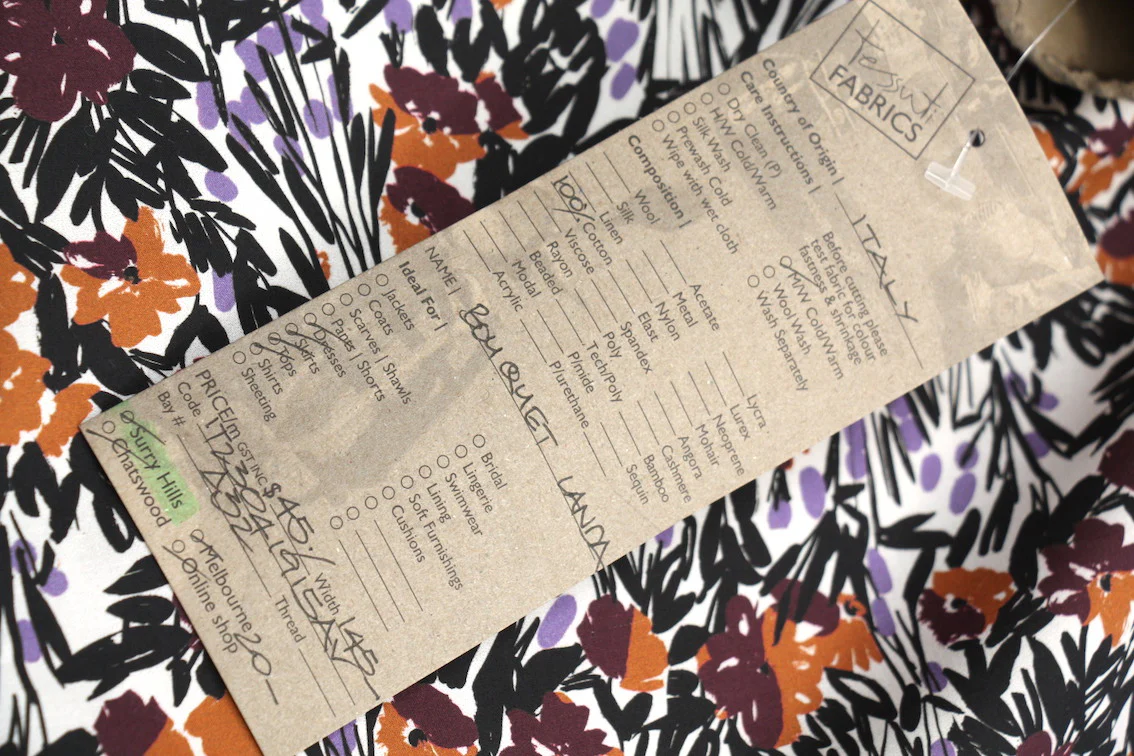 Tessuti
FABRICS
Country of Origin | ITALY
Care Instructions |
Dry Clean (P)
H/W Cold/Warm
Silk Wash
Prewash Cold
Wipe with wet cloth
Before cutting please
test fabric for colour
fastness & shrinkage
H/W Cold/Warm
Wool Wash
Wash Separately
Composition |
Wool
Silk
Linen
100% Cotton
Viscose
Rayon
Beaded
Modal
Acrylic
Acetate
Metal
Nylon
Elast
Spandex
Poly
Tech/Poly
P/mide
P/urethane
Lycra
Lurex
Neoprene
Mohair
Angora
Cashmere
Bamboo
Sequin
NAME | BOUQUET LANDA
Ideal For |
Jackets
Coats
Scarves | Shawls
Papes | Shorts
Dresses
Skirts
Tops
Shirts
Sheeting
Bridal
Lingerie
Swimwear
Lining
Soft Furnishings
Cushions
PRICE/m GST INC $45./ Width 145
Code
Bay #
Thread
Surry Hills
Chatswood
Melbourne 20
Online shop